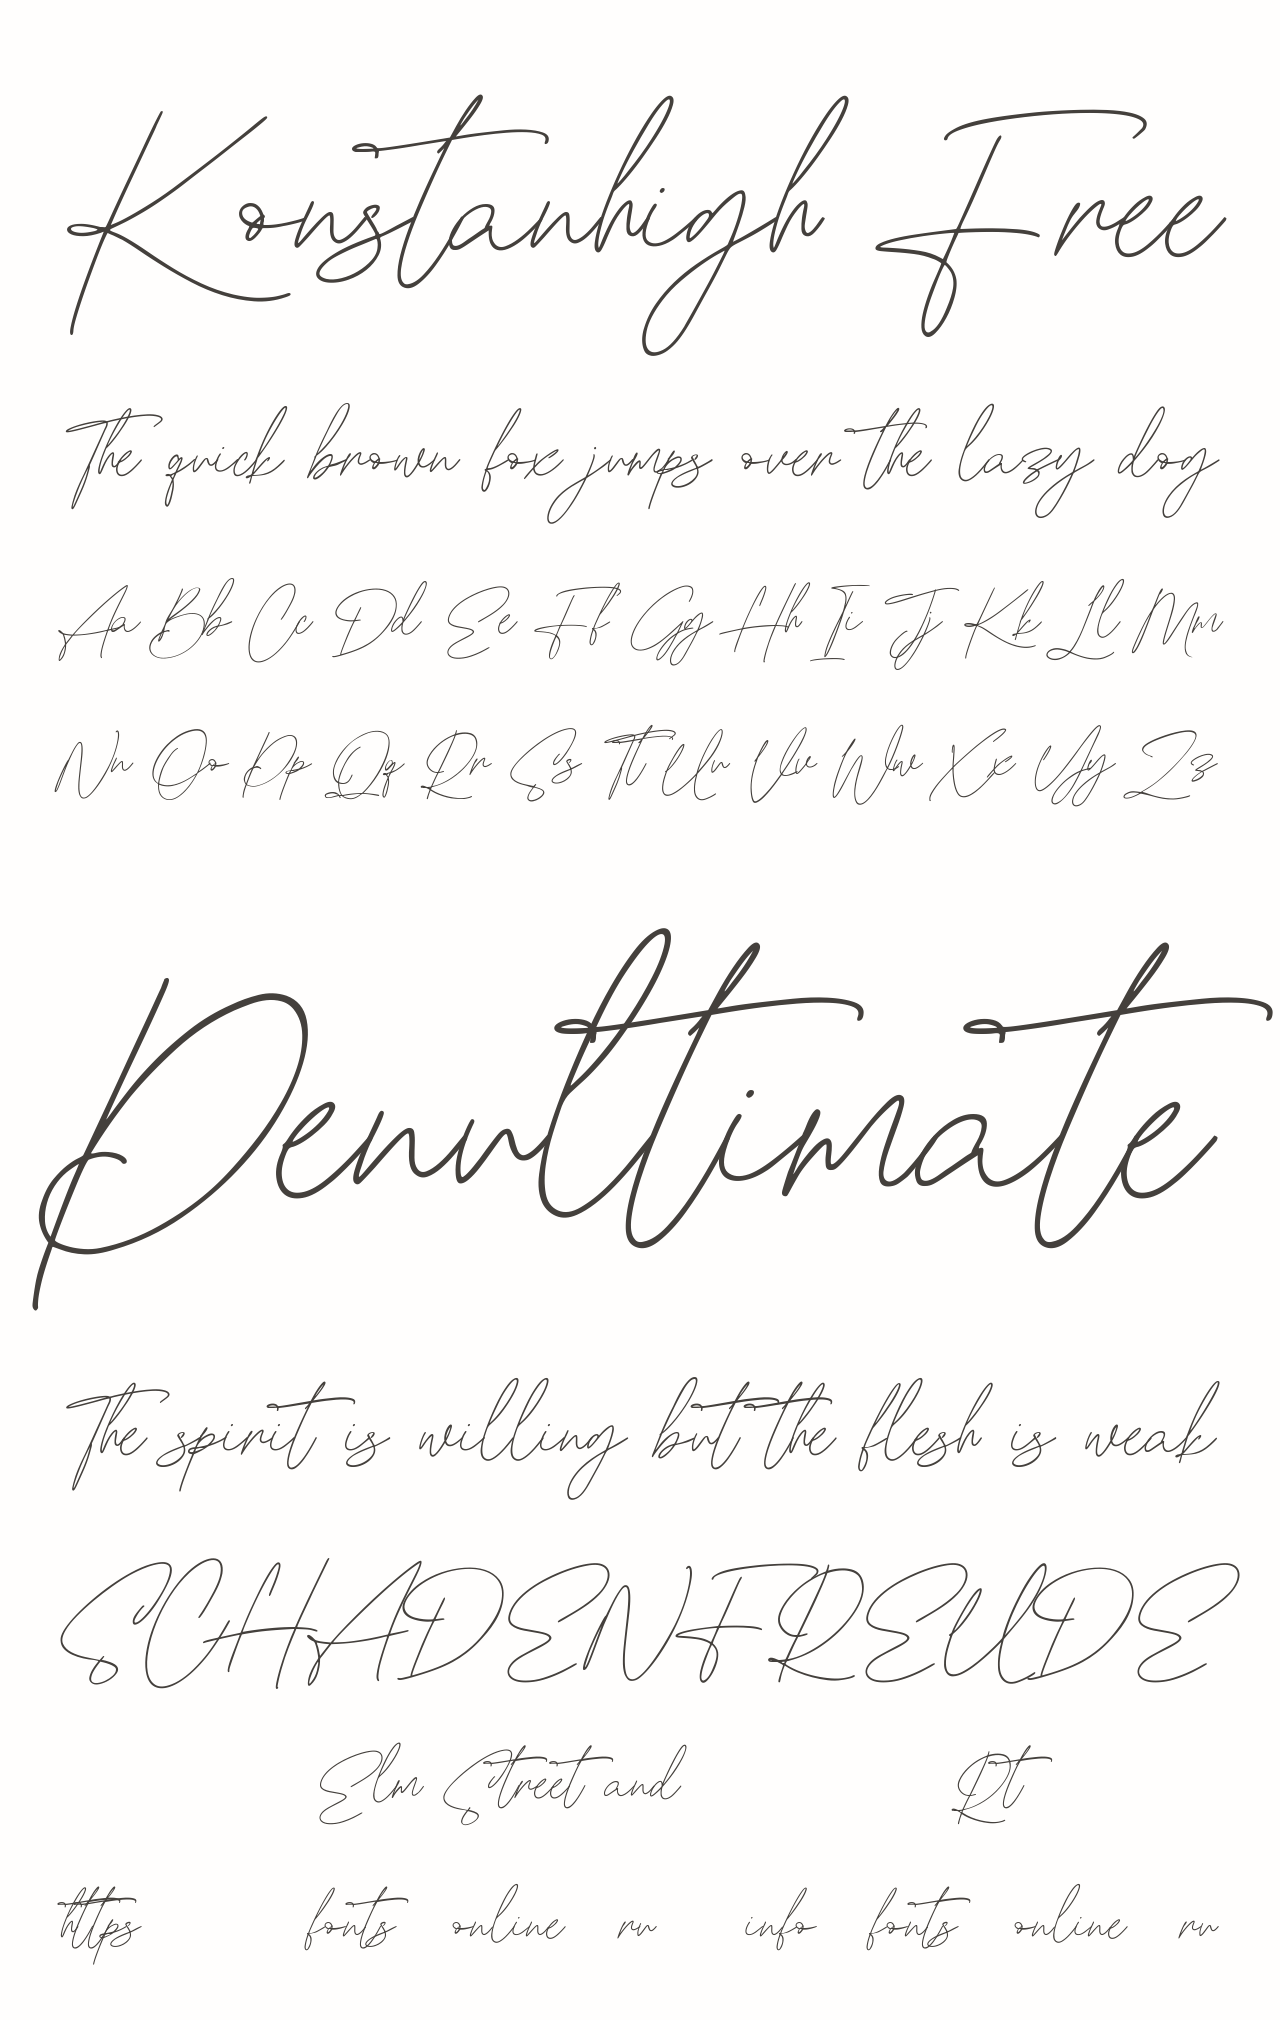 Konstanhigh Free
The quick brown fox jumps over the lazy dog
Aa Bb Cc Dd Ee Ff Gg Hh Ii Jj Kk Ll Mm
Nn Oo Pp Qq Rr Ss Tt Uu Vv Ww Xx Yy Zz
Penultimate
The spirit is willing but the flesh is weak
SCHADENFREUDE
Elm Street and Rt
https fonts online ru info fonts online ru